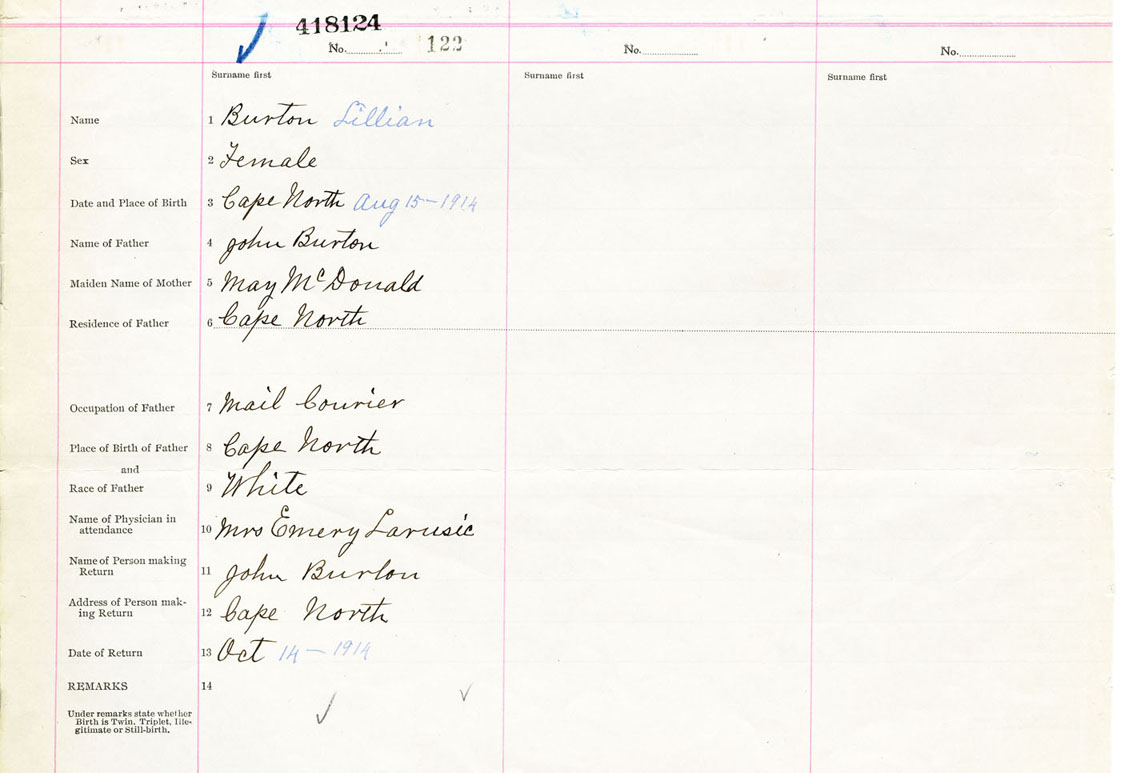 418124
No. 122 No. No.
Surname first Surname first Surname first
Name 1 Burton Lillian
Sex 2 Female
Date and Place of Birth 3 Cape North Aug 15-1914
Name of Father 4 John Burton
Maiden Name of Mother 5 May McDonald
Residence of Father 6 Cape North
Occupation of Father 7 Mail Courier
Place of Birth of Father 8 Cape North
and
Race of Father 9 White
Name of Physician in
attendance 10 Mrs Emery Larusic
Name of Person making
Return 11 John Burton
Address of Person mak-
ing Return 12 Cape North
Date of Return 13 Oct 14-1914
REMARKS 14
Under remarks state whether
Birth is Twin, Triplet, Ille-
gitimate or Still-birth.